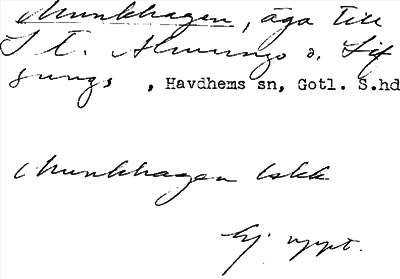 Munkhagen, äga till
St. Almungs o. Sig
sungs, Havdhems sn, Gotl. S.hd
Munkhagen Iskk
Ej uppt.